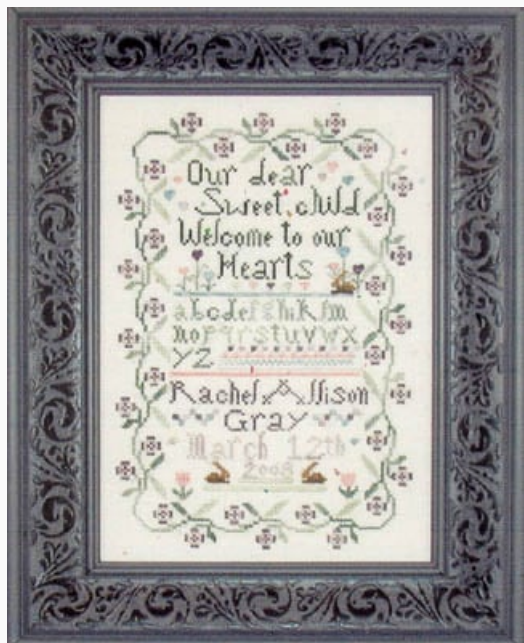 Our dear
Sweet child
Welcome to our
Hearts
abcdefghijklm
nopqrstuvwx
yz
Rachel Allison
Gray
March 12th
2008